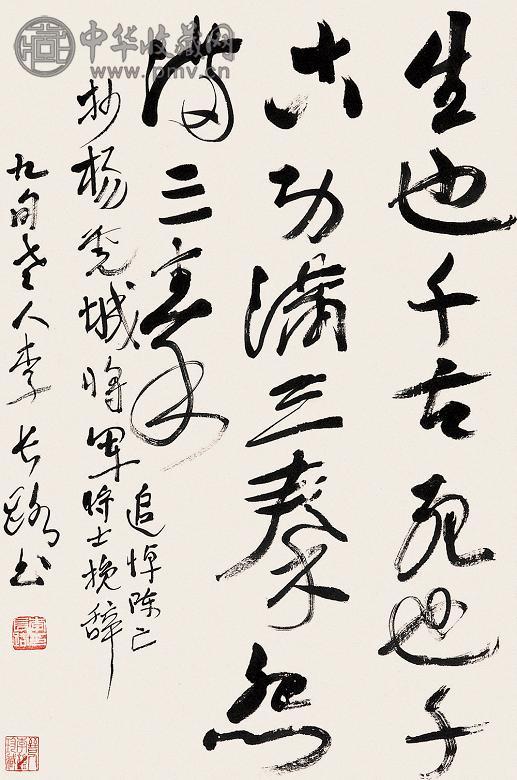 中华收藏网
www.pmv.cn
生也千古死也千
古功满三秦怨
满三秦
抄杨虎城将军
追悼陈亡
将士挽辞
九旬老人李长路书